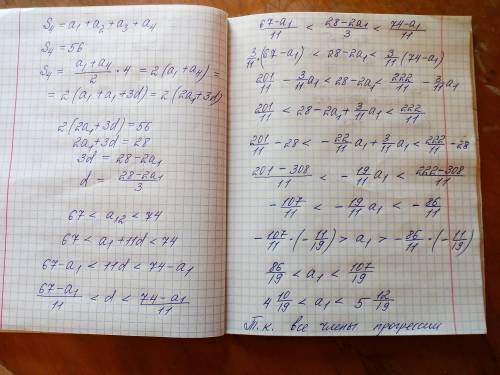 S₄ = a₁ + a₂ + a₃ + a₄
S₄ = 56
S₄ = (a₁ + a₄)/2 · 4 = 2(a₁ + a₄) =
= 2(a₁ + a₁ + 3d) = 2(2a₁ + 3d)
2(2a₁ + 3d) = 56
2a₁ + 3d = 28
3d = 28 - 2a₁
d = (28 - 2a₁)/3
67 < a₁₂ < 74
67 < a₁ + 11d < 74
67 - a₁ < 11d < 74 - a₁
(67 - a₁)/11 < d < (74 - a₁)/11
(67 - a₁)/11 < (28 - 2a₁)/3 < (74 - a₁)/11
3/11 · (67 - a₁) < 28 - 2a₁ < 3/11 (74 - a₁)
201/11 - 3/11 a₁ < 28 - 2a₁ < 222/11 - 3/11 a₁
201/11 < 28 - 2a₁ + 3/11 a₁ < 222/11
201/11 - 28 < - 22/11 a₁ + 3/11 a₁ < 222/11 - 28
(201 - 308)/11 < - 19/11 a₁ < (222 - 308)/11
- 107/11 < - 19/11 a₁ < - 86/11
- 107/11 · (- 11/19) > a₁ > - 86/11 · (- 11/19)
86/19 < a₁ < 107/19
4 10/19 < a₁ < 5 12/19
Т.к. все члены прогрессии